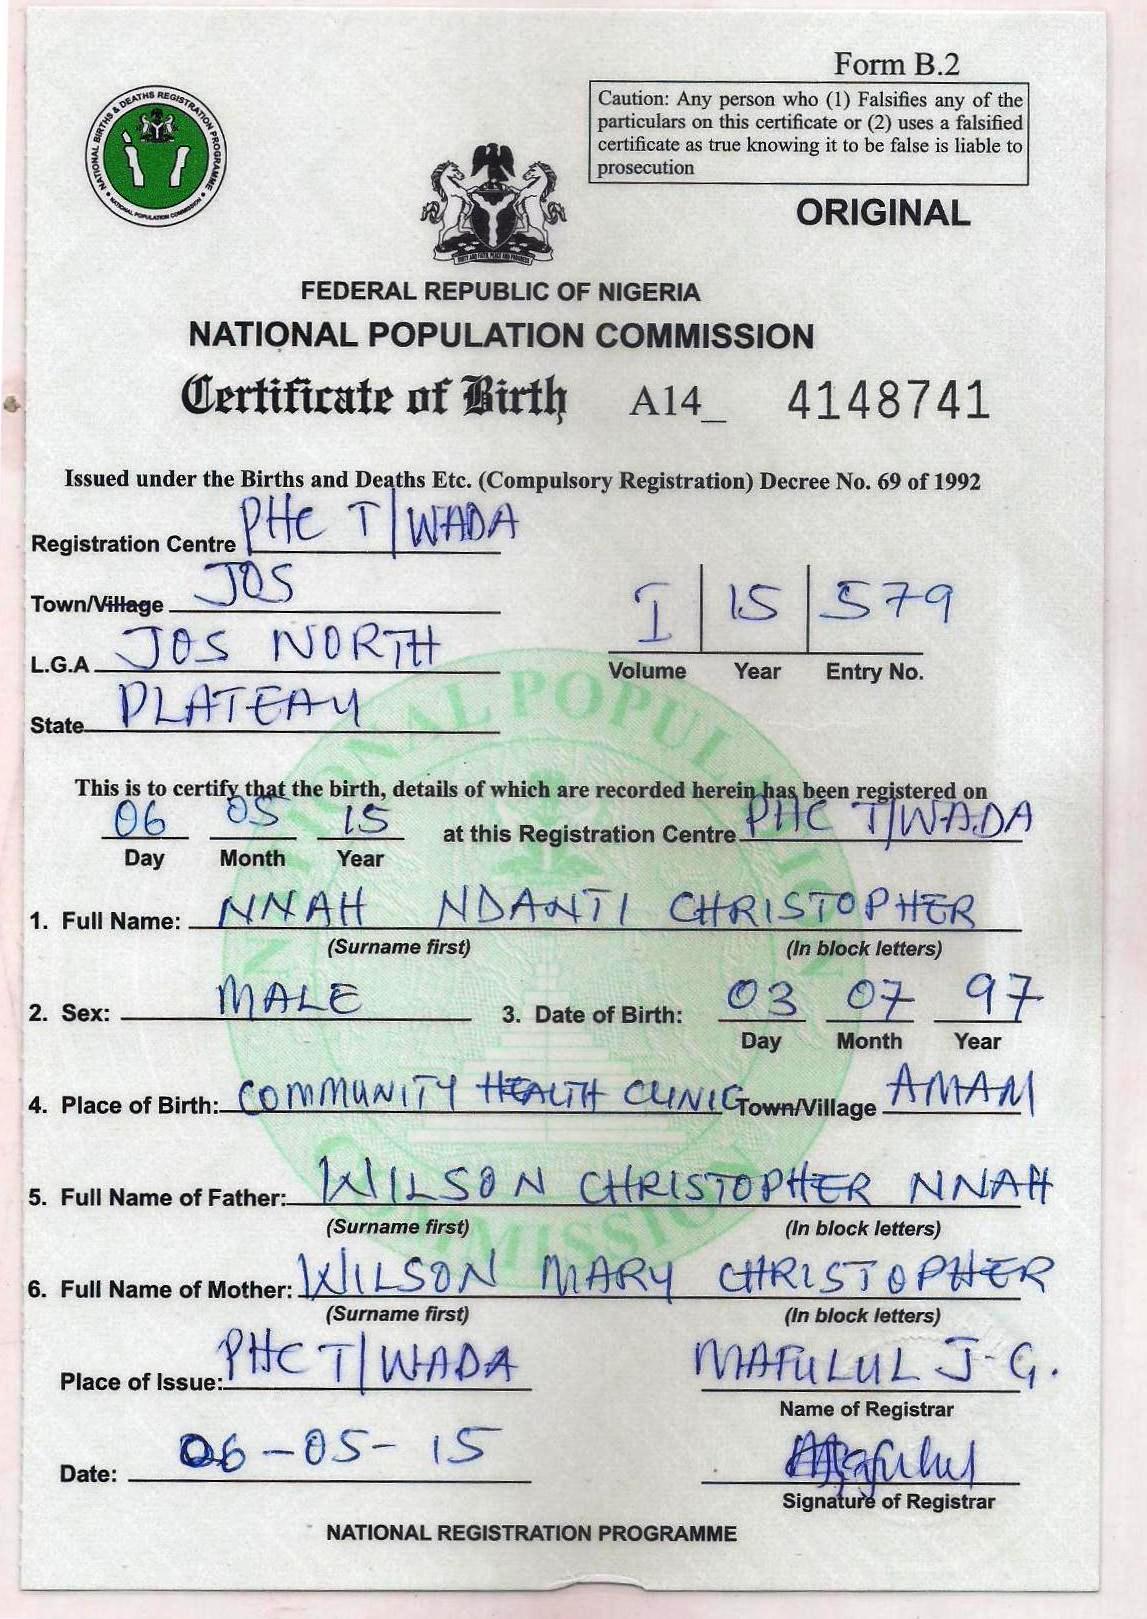 Form B.2
Caution: Any person who (1) Falsifies any of the
particulars on this certificate or (2) uses a falsified
certificate as true knowing it to be false is liable to
prosecution
NATIONAL BIRTHS & DEATHS REGISTRATION PROGRAMME
NATIONAL POPULATION COMMISSION
ORIGINAL
FEDERAL REPUBLIC OF NIGERIA
NATIONAL POPULATION COMMISSION
Certificate of Birth A14_ 4148741
Issued under the Births and Deaths Etc. (Compulsory Registration) Decree No. 69 of 1992
Registration Centre PHC T/WADA
Town/Village JOS
I 15 579
L.G.A JOS NORTH
Volume Year Entry No.
State PLATEAU
This is to certify that the birth, details of which are recorded herein has been registered on
06 05 15 at this Registration Centre PHC T/WADA
Day Month Year
1. Full Name: NNAH NDANTI CHRISTOPHER
(Surname first) (In block letters)
2. Sex: MALE 3. Date of Birth: 03 07 97
Day Month Year
4. Place of Birth: COMMUNITY HEALTH CLINIC Town/Village AMAM
5. Full Name of Father: WILSON CHRISTOPHER NNAH
(Surname first) (In block letters)
6. Full Name of Mother: WILSON MARY CHRISTOPHER
(Surname first) (In block letters)
Place of Issue: PHC T/WADA MAFULUL J-G.
Name of Registrar
Date: 06-05-15
Signature of Registrar
NATIONAL REGISTRATION PROGRAMME
NATIONAL POPULATION COMMISSION